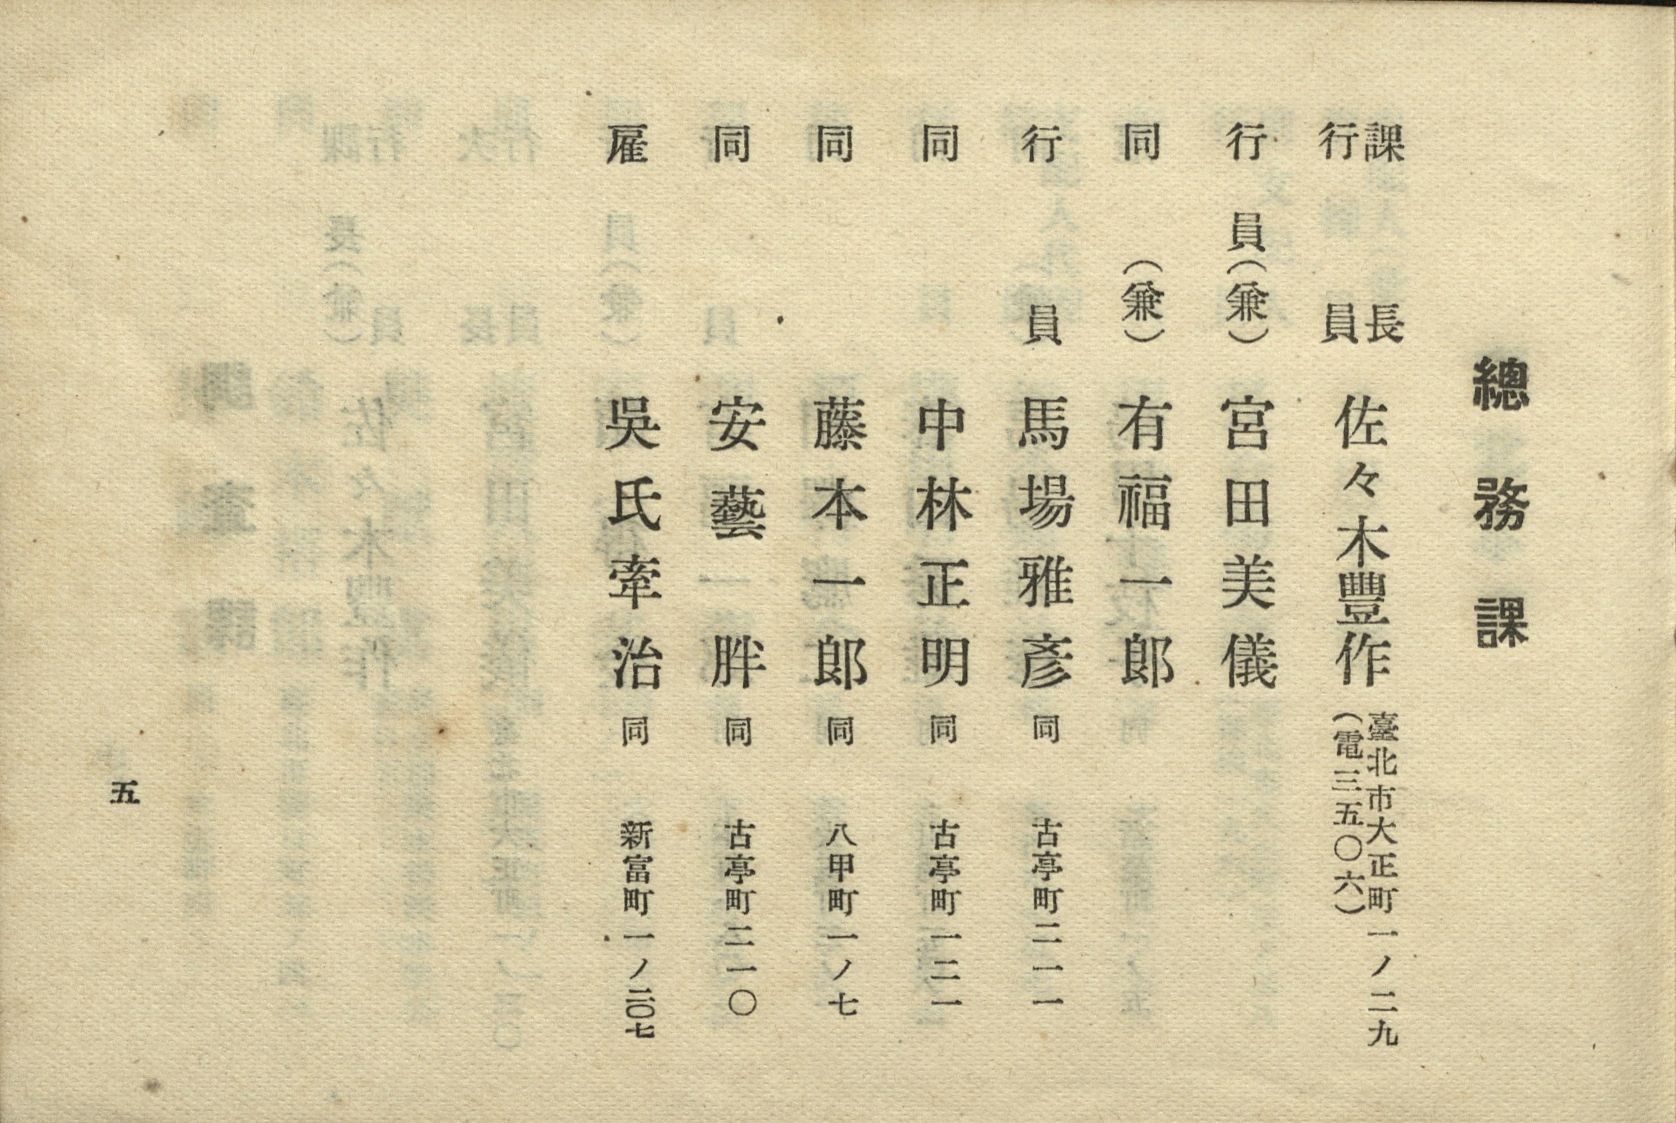 總務課
課長
行員
佐々木豐作
臺北市大正町一ノ二九
(電三五〇六)
行員(兼) 宮田美儀
同(兼) 有福一郎
行員 馬場雅彥 同 古亭町二一一
同 中林正明 同 古亭町一二一
同 藤本一郎 同 八甲町一ノ七
同 安藝胖 同 古亭町二一〇
雇 吳氏牽治 同 新富町一ノ二〇七
五